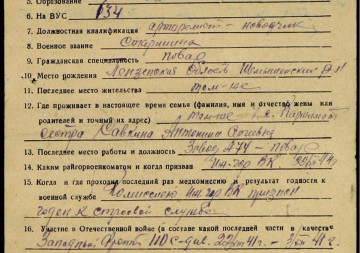 5. Образование
6. На ВУС 134
7. Должностная квалификация арторомот - наводчик
8. Военное звание Старшина
9. Гражданская специальность повар
10. Место рождения Пензенская область
11. Последнее место жительства там-же
12. Где проживает в настоящее время семья (фамилия, имя и отчество жены или
родителей и точный их адрес) там-же с.
сестра Савкина Антонина
13. Последнее место работы и должность Завод А74 - повар
14. Каким райгорвоенкоматом и когда призван РВК
15. Когда и где проходил последний раз медкомиссию и результат годности к
военной службе Комиссией РВК признан
годен к строевой службе
16. Участие в Отечественной войне (в составе какой последней части и в качестве
Западный фронт 110 с. див. 41г. - 41г.